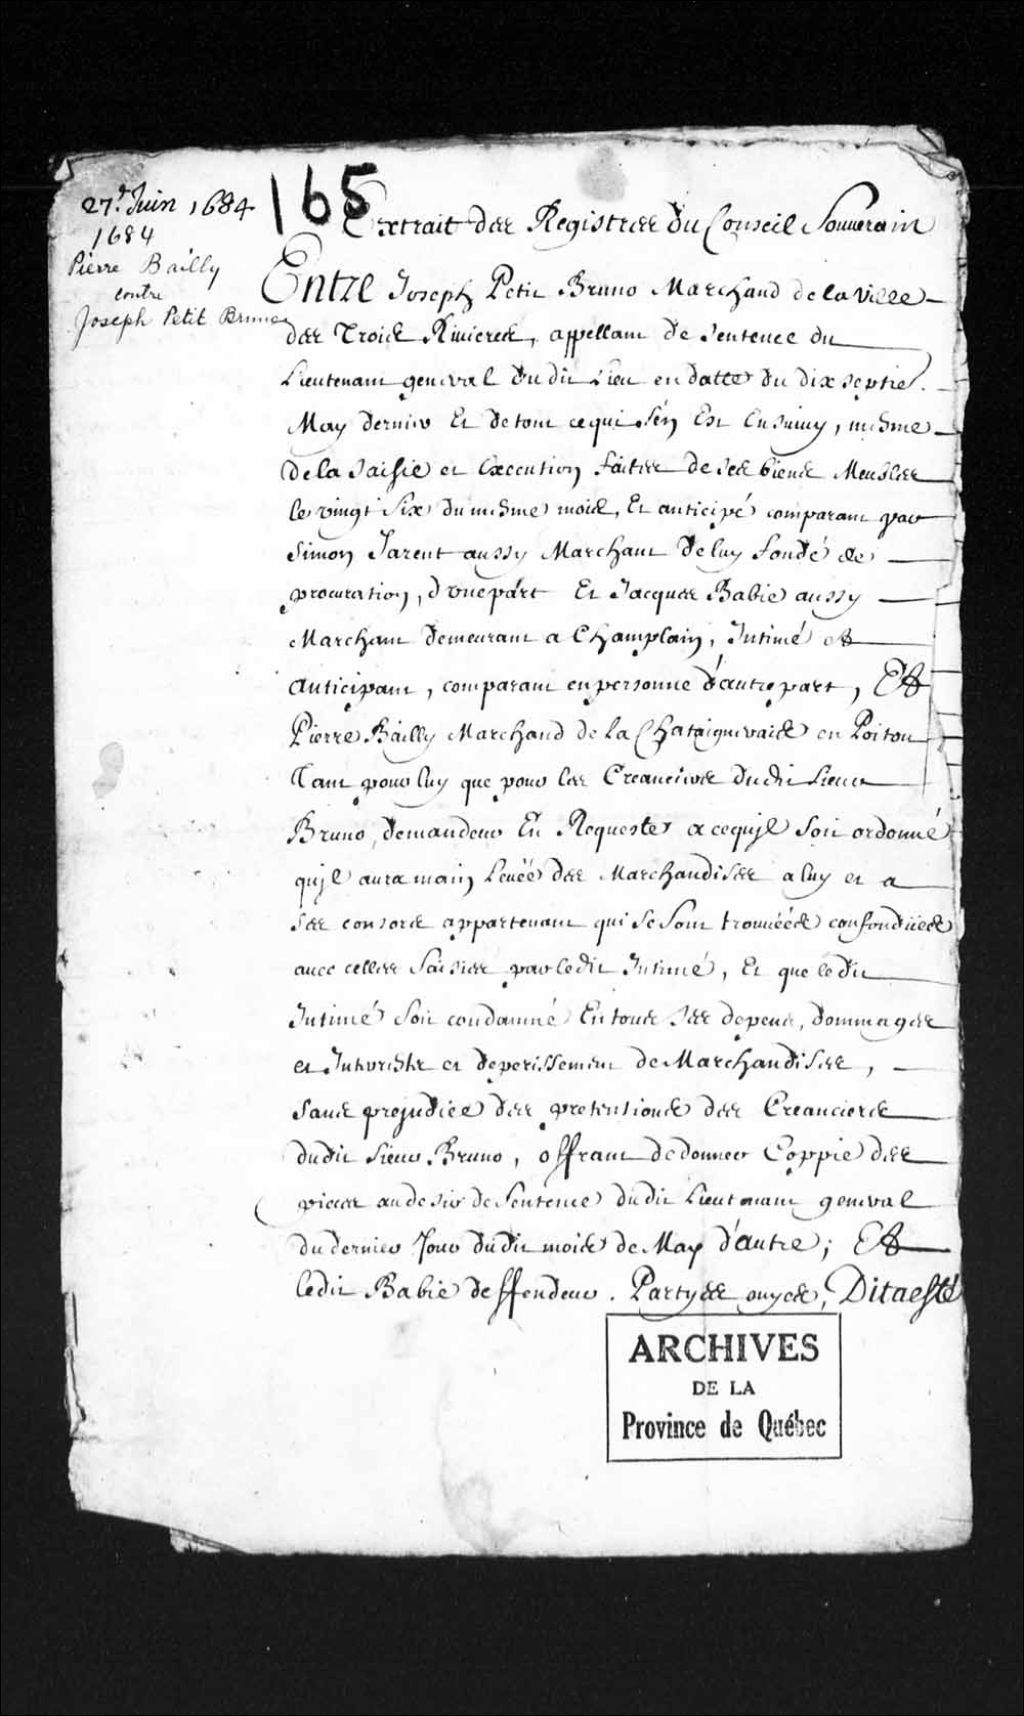 27.e Juin 1684
1684
Pierre Bailly
contre
Joseph Petit Bruneau
165
Extrait des Registres du Conseil Souuerain
Entre Joseph Petit Bruno Marchand de la Ville
des Trois Riuieres, appellant de sentence du
Lieutenant general dudit Lieu en datte du dix septie.
May dernier Et de tout ce qui s'én Est Ensuiuy, mesme
de la saisie et Execution faittes de ses biens Meubles
le vingt Six du mesme mois, Et anticipé comparant par
Simon Jarent aussy Marchant de luy fondé de
procuration, d'vne part Et Jacques Babie aussy
Marchant demeurant a Champlain, Intimé et
anticipant, comparant en personne d'autre part, Et
Pierre Bailly Marchand de la Chataigneraie en Poitou
Tant pour luy que pour les Creanciers dudit Sieur
Bruno, demandeur En Requeste a ce qu'jl soit ordonné
qu'jl aura main Leuée des Marchandises a luy et a
ses consors appartenant qui se sont trouuéés confondües
auec celles saisies par ledit Intimé, Et que ledit
Intimé soit condamné En tous ses depens, dommages
et Interests et deperissement de Marchandises,
sans prejudice des pretentions des Creanciers
dudit Sieur Bruno, offrant de donner Coppie des
pieces au desir de Sentence dudit Lieutenant general
du dernier Jour dudit mois de May d'autre; Et
ledit Babie deffendeur. Partyes ouyes, Dit a esté
ARCHIVES
DE LA
Province de Québec